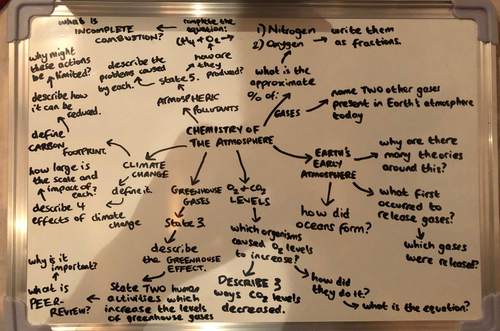 CHEMISTRY OF
THE ATMOSPHERE
GASES
what is the
approximate
% of:
1) Nitrogen
2) Oxygen
write them
as fractions.
name TWO other gases
present in Earth's atmosphere
today
EARTH'S
EARLY
ATMOSPHERE
why are there
many theories
around this?
what first
occurred to
release gases?
which gases
were released?
how did
oceans form?
O2 + CO2
LEVELS
which organisms
caused O2 levels
to increase?
how did
they do it?
what is the equation?
DESCRIBE 3
ways CO2 levels
decreased.
GREENHOUSE
GASES
State 3.
describe
the GREENHOUSE
EFFECT.
State TWO human
activities which
increase the levels
of greenhouse gases
what is
PEER-
REVIEW?
why is it
important?
CLIMATE
CHANGE
define it.
describe 4
effects of climate
change
how large is
the scale and
impact of
each?
define
CARBON
FOOTPRINT.
describe how
it can be
reduced.
why might
these actions
be limited?
ATMOSPHERIC
POLLUTANTS
State 5.
how are
they
produced?
describe the
problems caused
by each.
complete the
equation:
CH4 + O2 →
what is
INCOMPLETE
COMBUSTION?